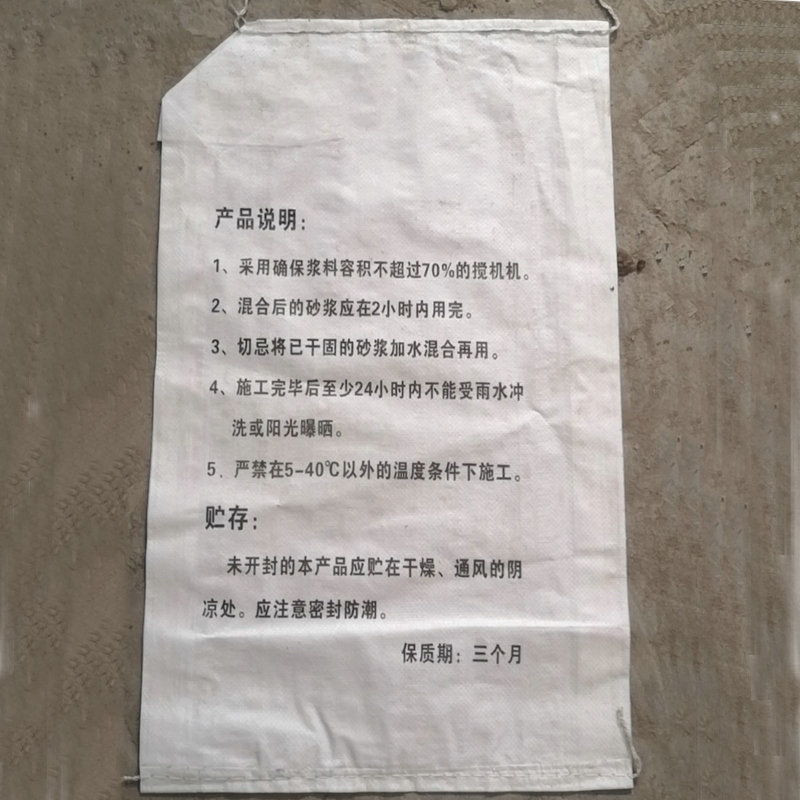 产品说明：
1、采用确保浆料容积不超过70%的搅机机。
2、混合后的砂浆应在2小时内用完。
3、切忌将已干固的砂浆加水混合再用。
4、施工完毕后至少24小时内不能受雨水冲
洗或阳光曝晒。
5、严禁在5-40℃以外的温度条件下施工。
贮存：
未开封的本产品应贮在干燥、通风的阴
凉处。应注意密封防潮。
保质期：三个月